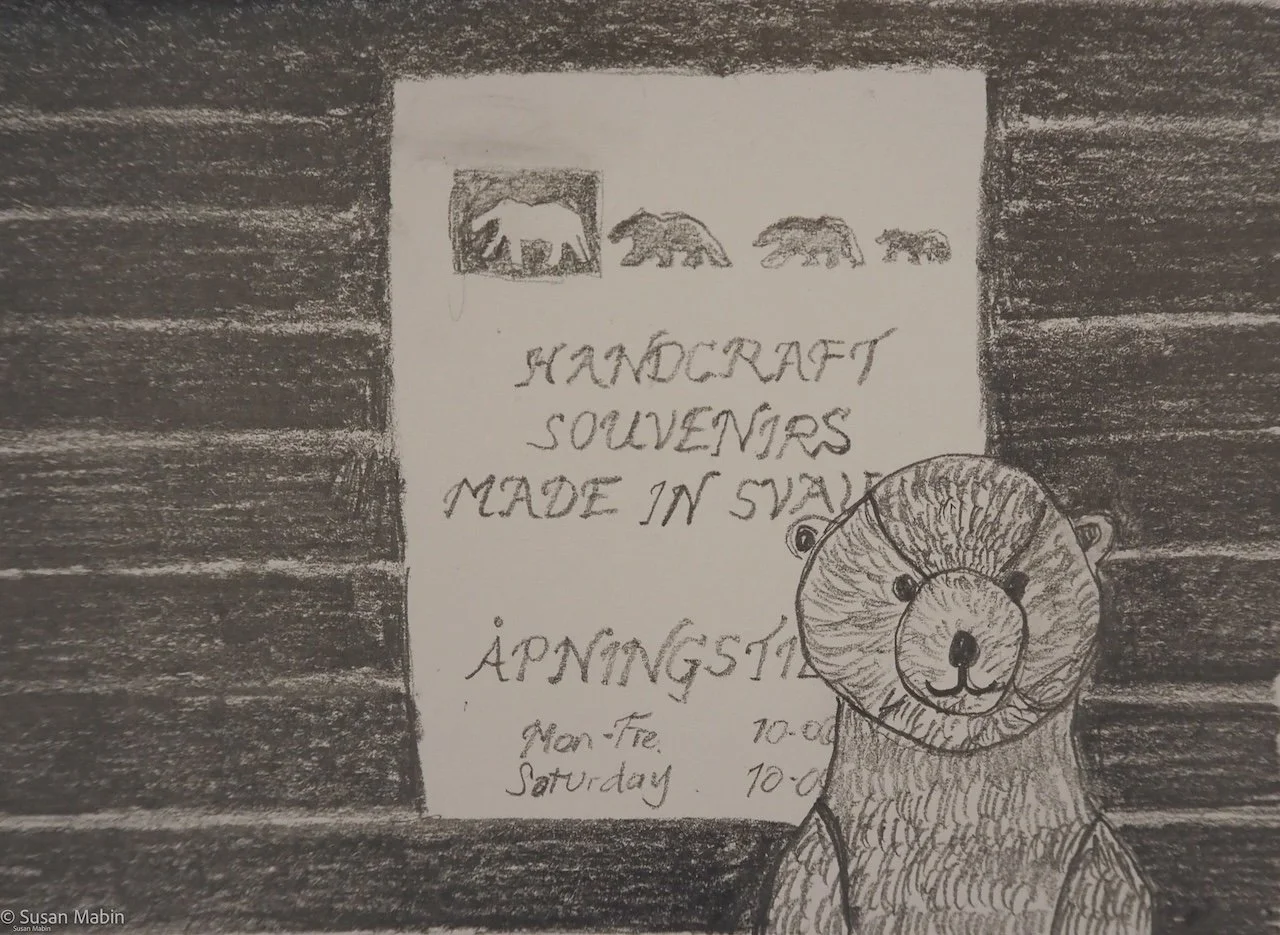 HANDCRAFT
SOUVENIRS
MADE IN SVAL
ÅPNINGSTID
Mon-Fre. 10-00
Saturday 10-0
© Susan Mabin
Susan Mabin